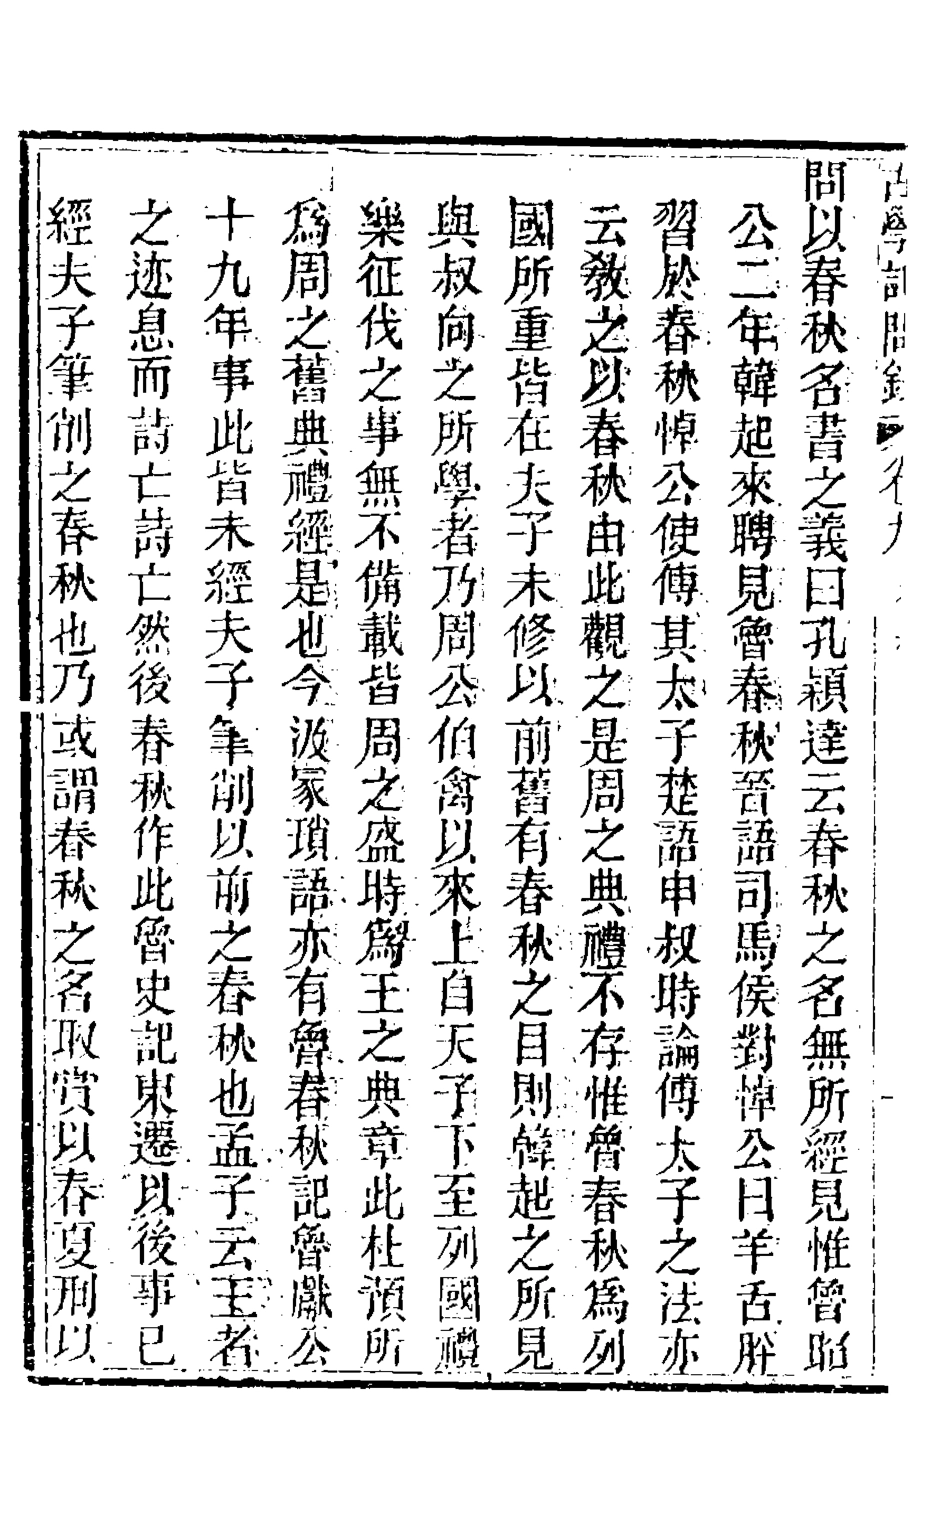 問以春秋名書之義曰孔穎達云春秋之名無所經見惟魯昭
公二年韓起來聘見魯春秋晉語司馬侯對悼公曰羊舌肸
習於春秋悼公使傅其太子楚語申叔時論傅太子之法亦
云敎之以春秋由此觀之是周之典禮不存惟魯春秋爲列
國所重皆在夫子未修以前舊有春秋之目則韓起之所見
與叔向之所學者乃周公伯禽以來上自天子下至列國禮
樂征伐之事無不備載皆周之盛時爲王之典章此杜預所
爲周之舊典禮經是也今汲冢瑣語亦有魯春秋記魯獻公
十九年事此皆未經夫子筆削以前之春秋也孟子云王者
之迹息而詩亡詩亡然後春秋作此魯史記東遷以後事已
經夫子筆削之春秋也乃或謂春秋之名取賞以春夏刑以